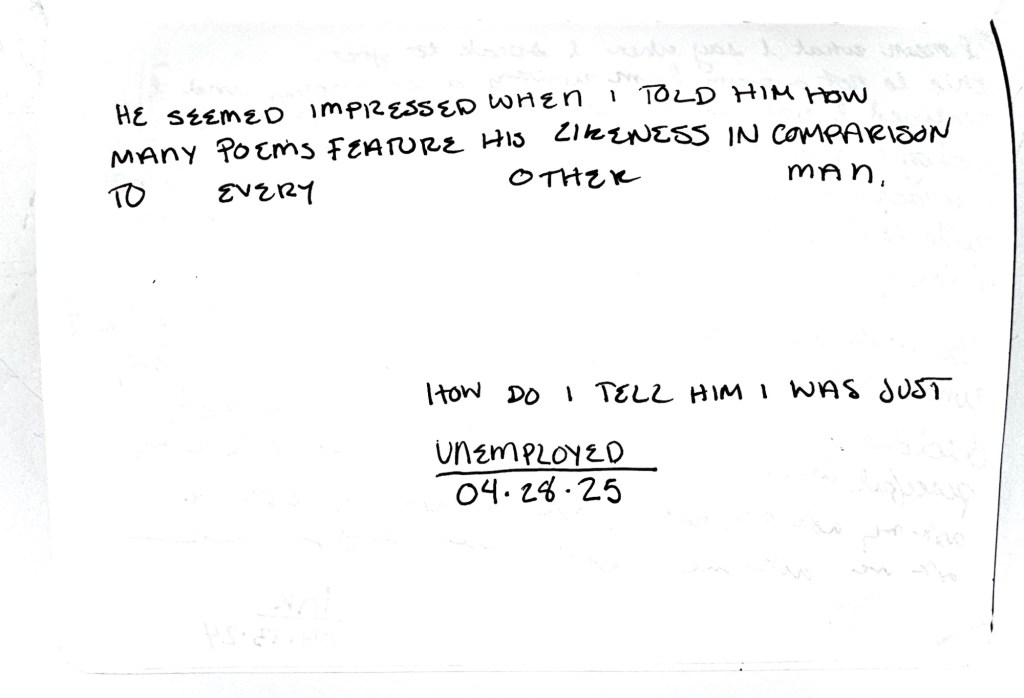 HE SEEMED IMPRESSED WHEN I TOLD HIM HOW
MANY POEMS FEATURE HIS LIKENESS IN COMPARISON
TO EVERY OTHER MAN.
HOW DO I TELL HIM I WAS JUST
UNEMPLOYED
04.28.25